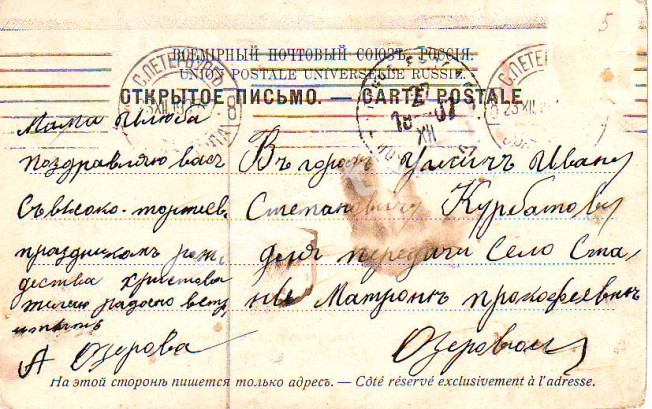 5
ВСЕМІРНЫЙ ПОЧТОВЫЙ СОЮЗЪ. РОССІЯ.
UNION POSTALE UNIVERSELLE RUSSIE.
ОТКРЫТОЕ ПИСЬМО. — CARTE POSTALE
С.ПЕТЕРБУРГЪ
С.ПЕТЕ
XII
Мама и Люба
поздравляю васъ
Съ высоко-торжев.
праздникомъ рож
дества христова
желаю радосно встр
итить
А Озерова
Въ городъ Угличъ Ивану
Степановичу Курбатову
для передачи Село Ста
Матронѣ прокофьевнѣ
Озеровой
На этой сторонѣ пишется только адресъ. — Côté réservé exclusivement à l'adresse.